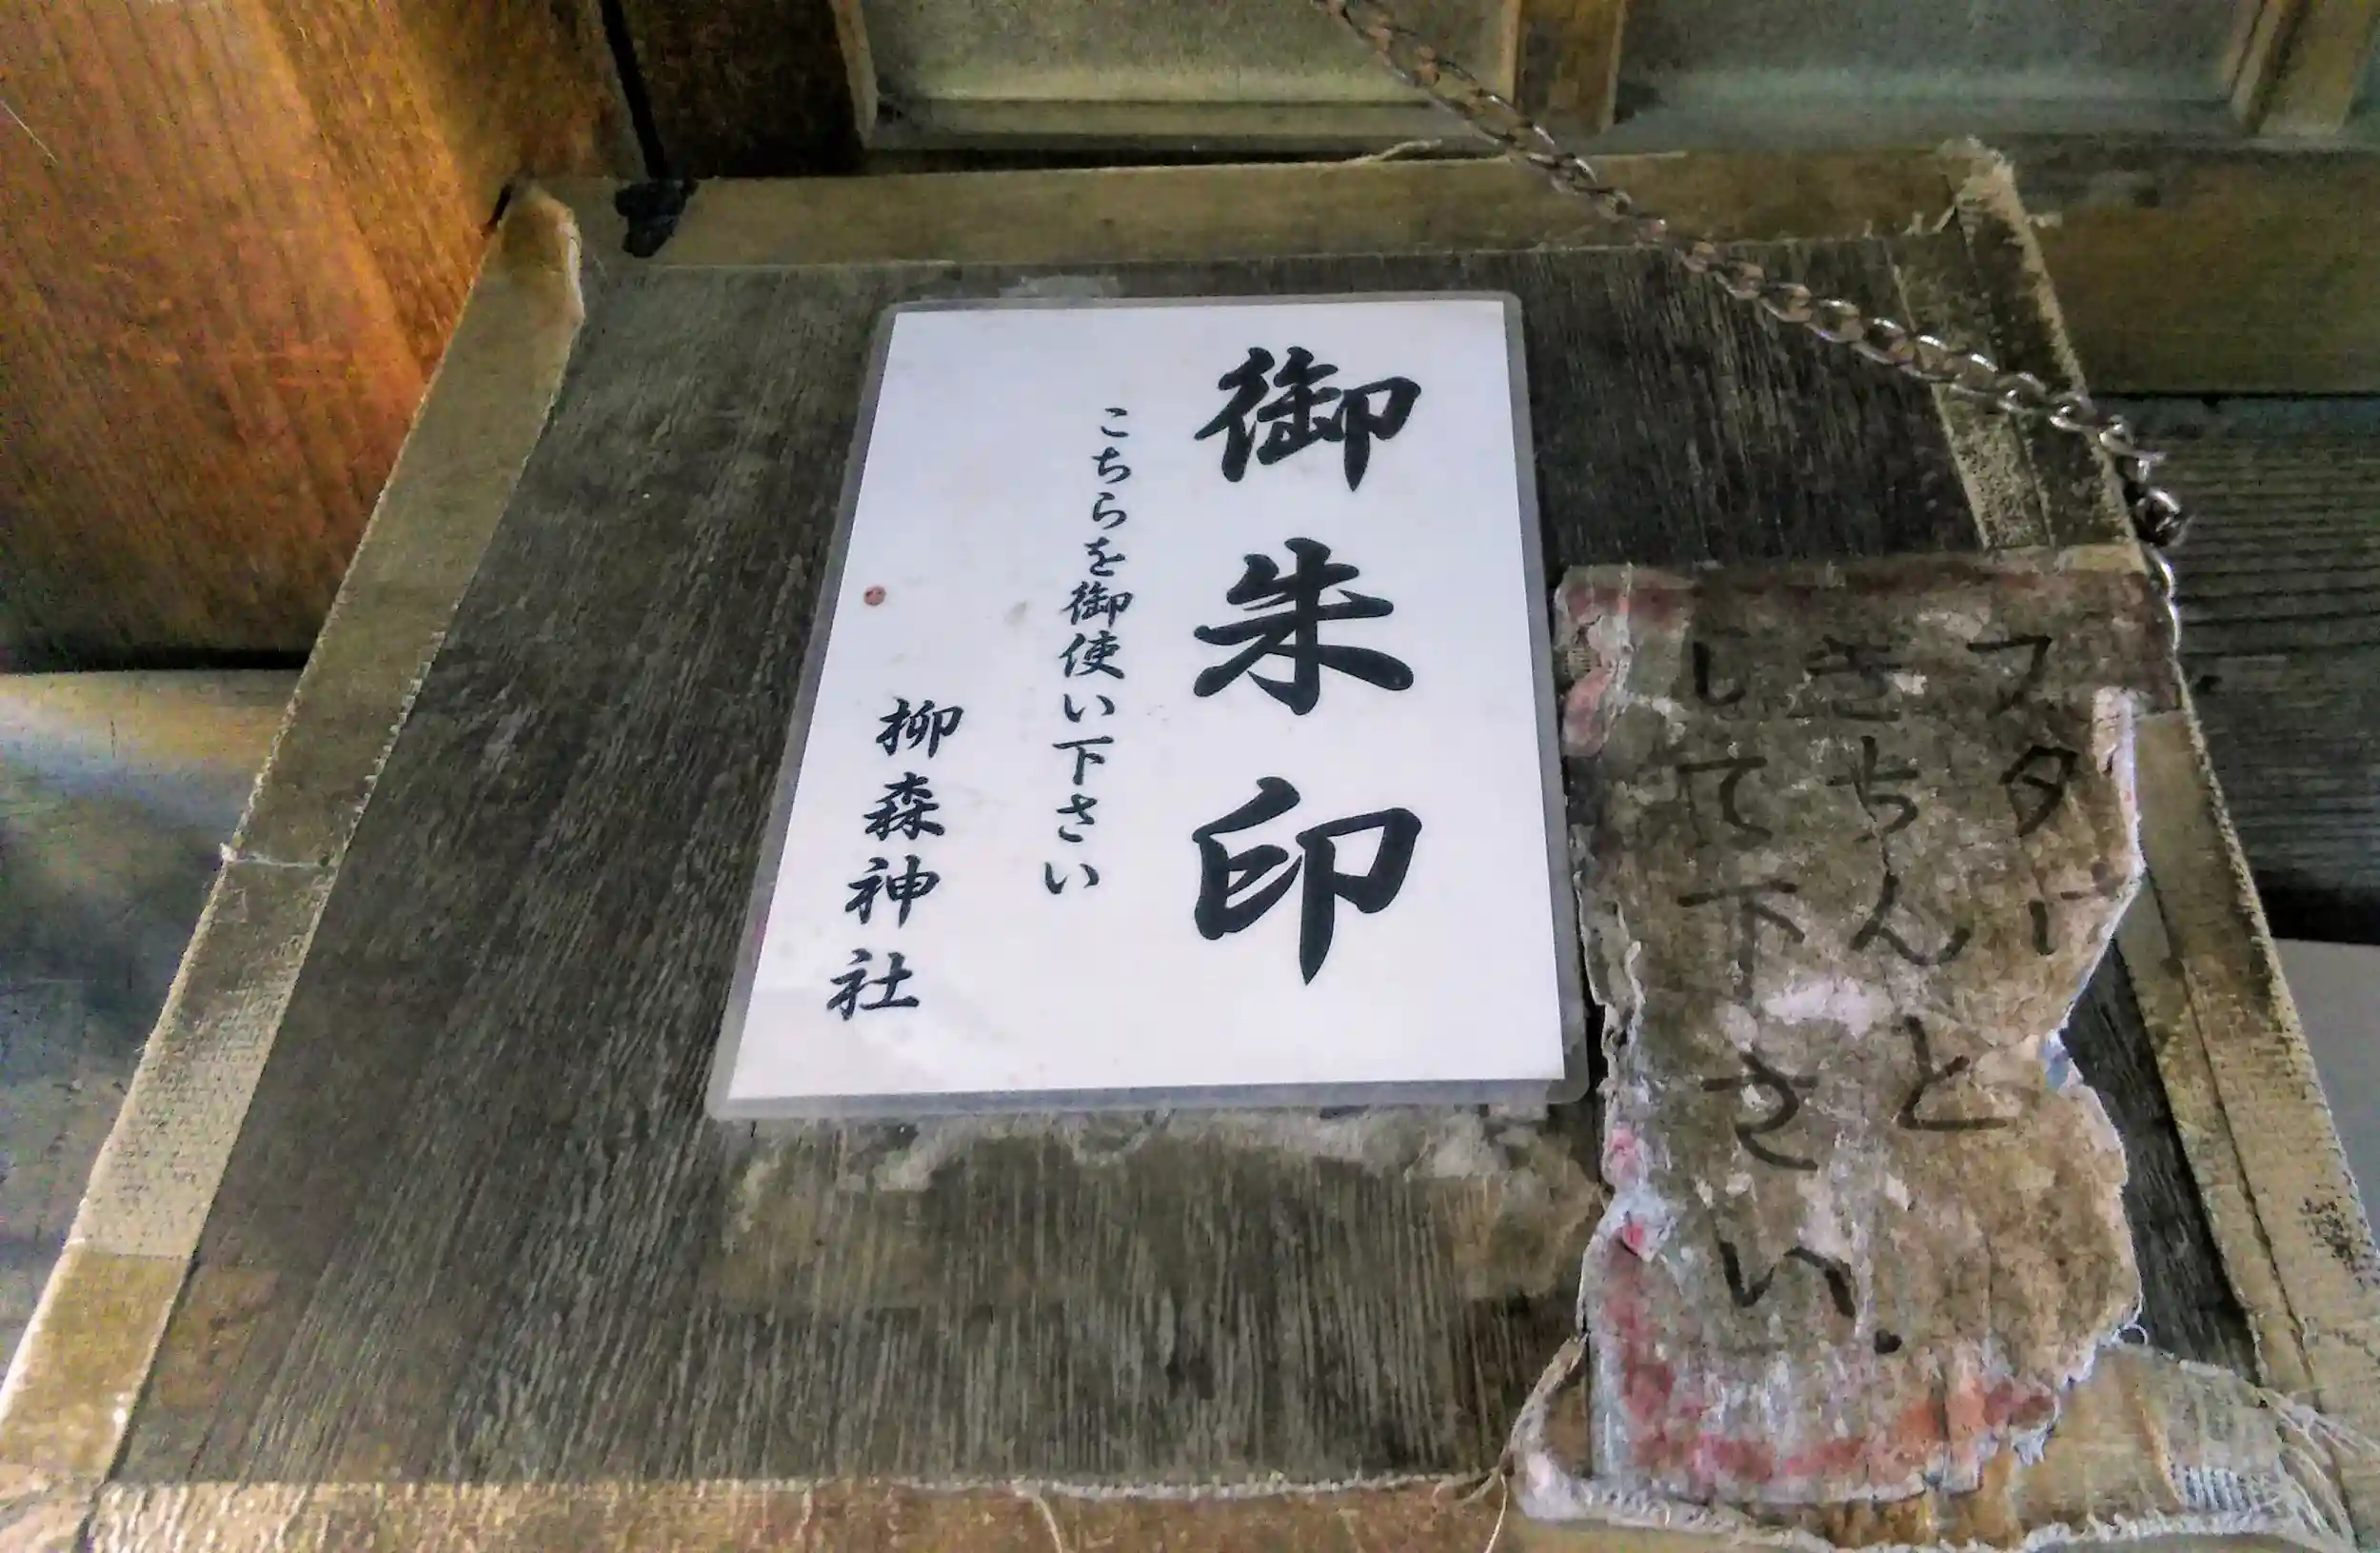 御朱印
こちらを御使い下さい
柳森神社
フタは
きちんと
して下さい